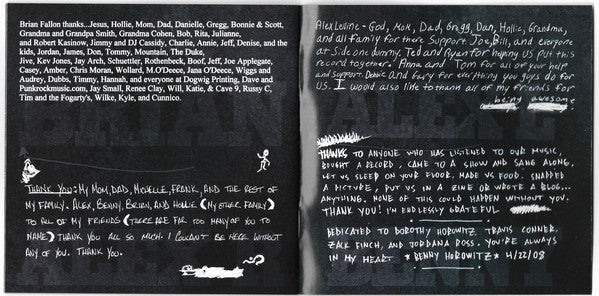 Brian Fallon thanks...Jesus, Hollie, Mom, Dad, Danielle, Gregg, Bonnie & Scott,
Grandma and Grandpa Smith, Grandma Cohen, Bob, Rita, Julianne,
and Robert Kasinow, Jimmy and DJ Cassidy, Charlie, Annie, Jeff, Denise, and the
kids, Jordan, James, Don, Tommy, Mountain, The Duke,
Jive, Kev Jones, Jay Arch, Schuettler, Rothenbeck, Boof, Jeff, Joe Applegate,
Casey, Amber, Chris Moran, Wollard, M.O'Dece, Jana O'Deece, Wiggs and
Audrey, Dubbs, Timmy, Hannah, and everyone at Dogwig Printing, Dave and
Punkrockmusic.com, Jay Small, Renee Clay, Will, Katie, & Cave 9, Russy C,
Tim and the Fogarty's, Wilke, Kyle, and Cunnico.
BRIAN
THANK YOU: MY MOM, DAD, MICHELLE, FRANK, AND THE REST OF
MY FAMILY. ALEX, BENNY, BRIAN, AND HOLLIE (MY OTHER FAMILY)
TO ALL OF MY FRIENDS (THERE ARE FAR TOO MANY OF YOU TO
NAME) THANK YOU ALL SO MUCH. I COULDN'T BE HERE WITHOUT
ANY OF YOU. THANK YOU.
Alex Levine - God, Mom, Dad, Gregg, Dan, Hollie, Grandma,
and all family for there support. Joe, Bill, and everyone
at Side one dummy. Ted and Ryan for helping us put this
record together. Anna and Tom for all of your help
and support. Debbie and Gary for everything you guys do for
us. I would also like to thank all of my friends for
being awesome
ALEX
THANKS TO ANYONE WHO HAS LISTENED TO OUR MUSIC,
BOUGHT A RECORD, CAME TO A SHOW AND SANG ALONG,
LET US SLEEP ON YOUR FLOOR, MADE US FOOD, SNAPPED
A PICTURE, PUT US IN A ZINE OR WROTE A BLOG...
ANYTHING. NONE OF THIS COULD HAPPEN WITHOUT YOU.
THANK YOU! I'M ENDLESSLY GRATEFUL
DEDICATED TO DOROTHY HOROWITZ, TRAVIS CONNER,
ZACK FINCH, AND JORDANA ROSS. YOU'RE ALWAYS
IN MY HEART. * BENNY HOROWITZ * 4/22/08